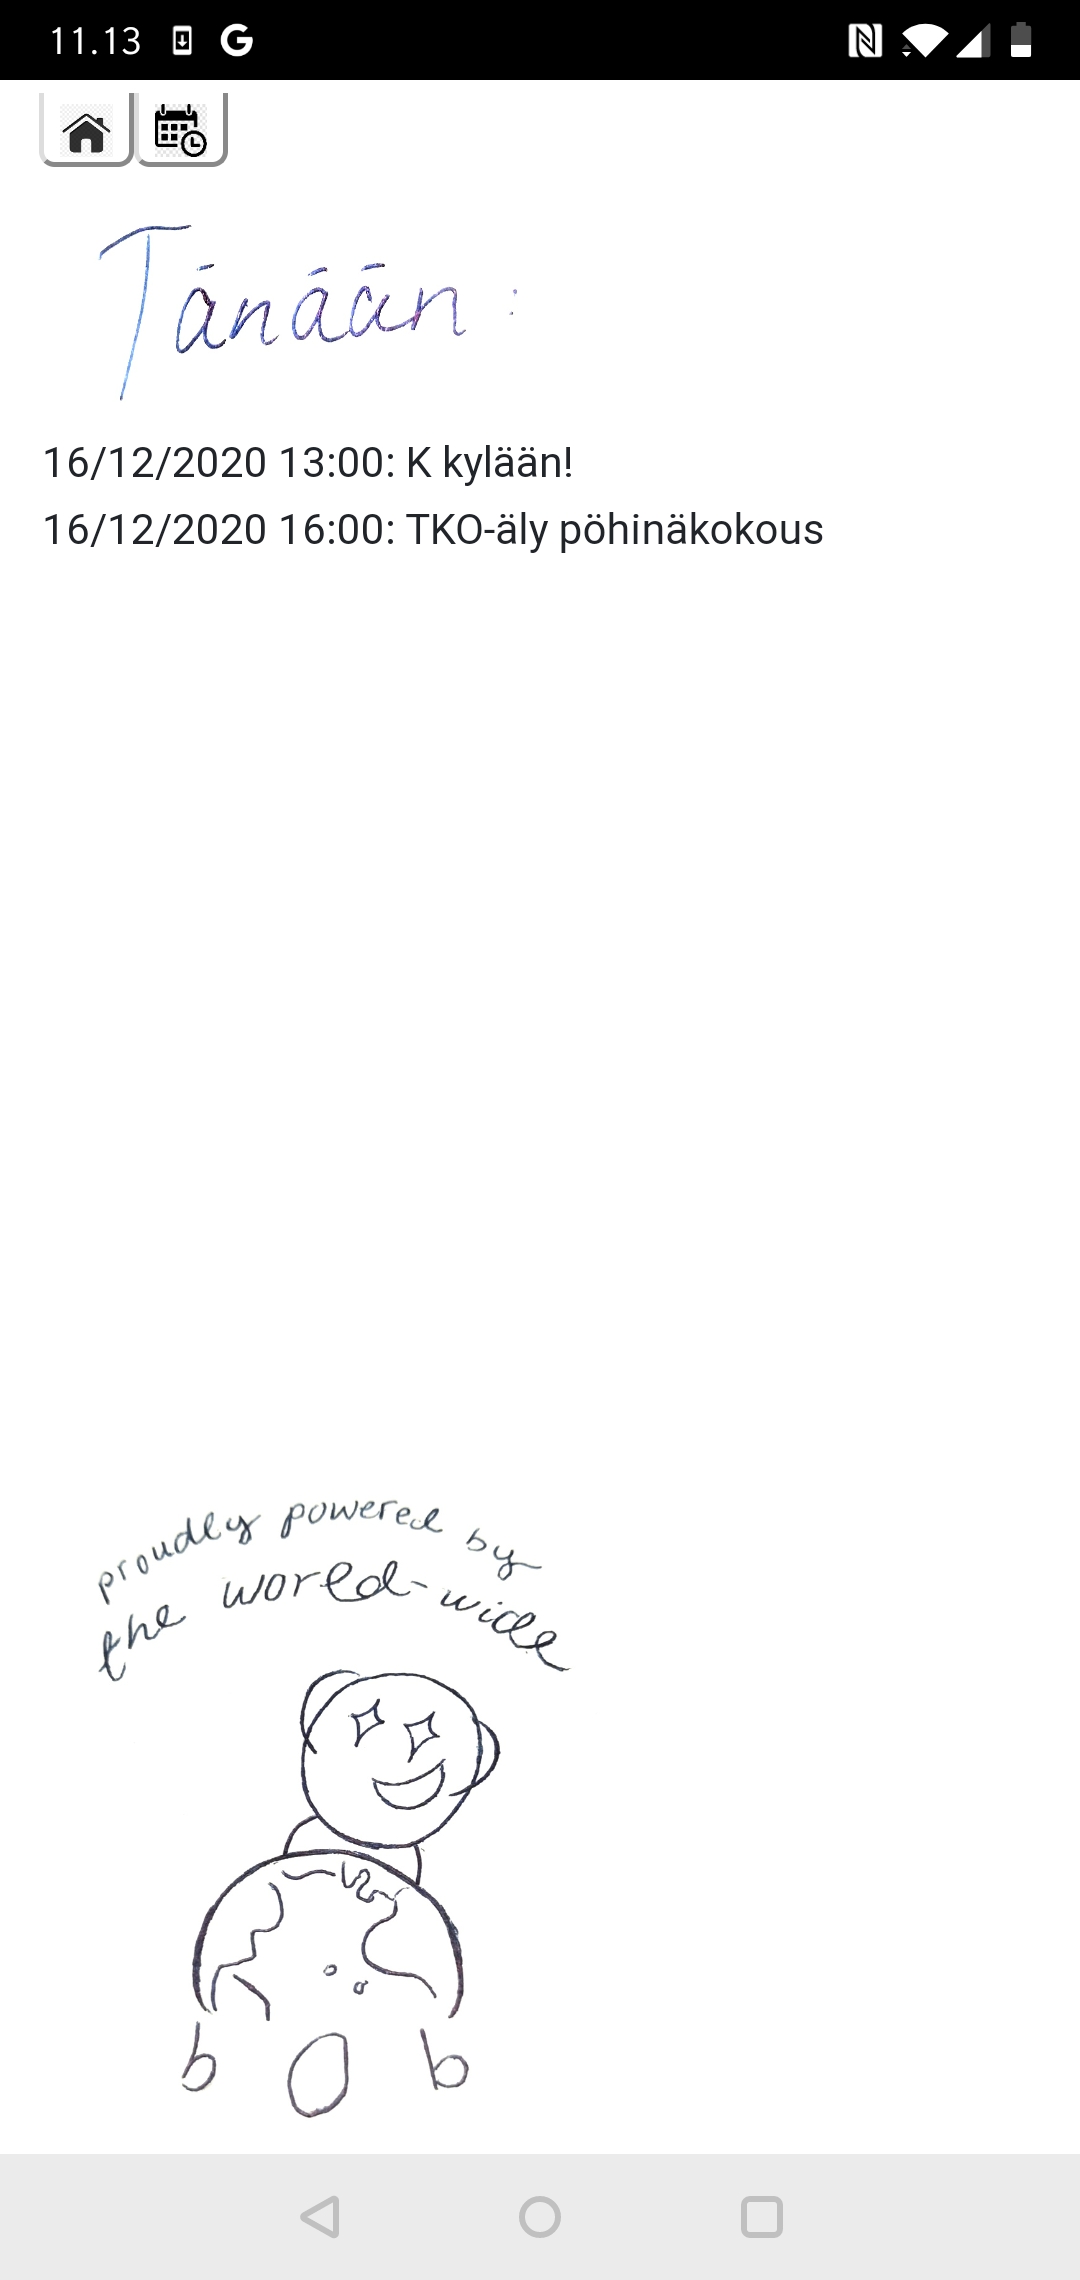 11.13 G N
Tänään:
16/12/2020 13:00: K kylään!
16/12/2020 16:00: TKO-äly pöhinäkokous
proudly powered by
the world-wide
bob